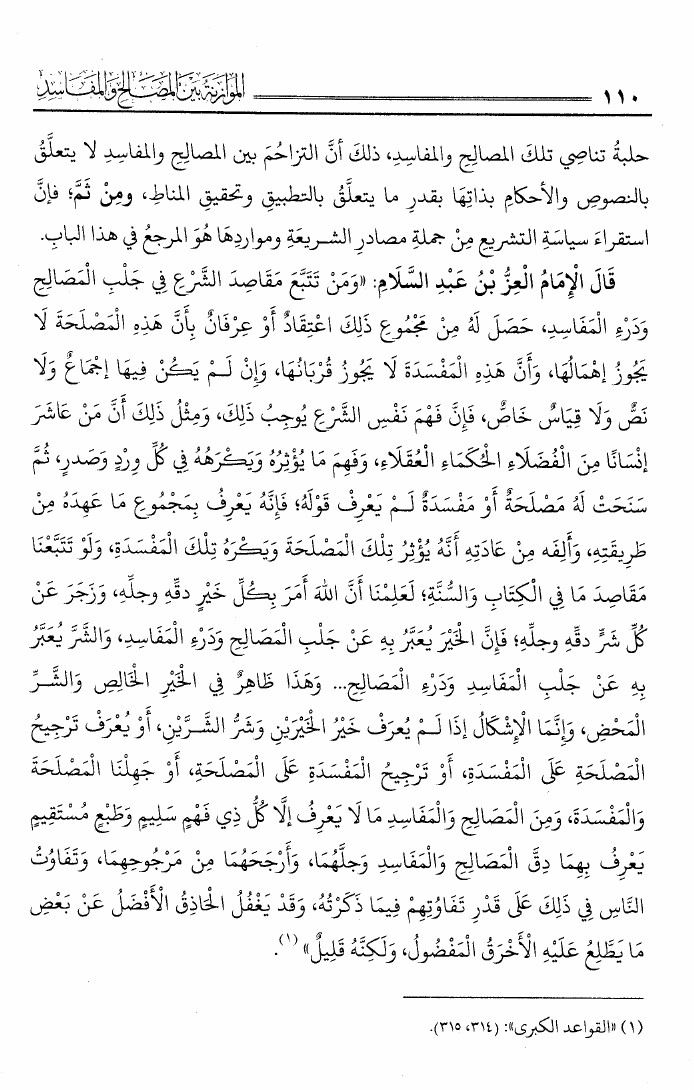 ١١٠ الموازنة بين المصالح والمفاسد
حلبةُ تناصِي تلكَ المصالِحِ والمفاسدِ، ذلكَ أنَّ التزاحُمَ بين المصالِحِ والمفاسِدِ لا يتعلَّقُ
بالنصوصِ والأحكامِ بذاتِهَا بقدرِ ما يتعلَّقُ بالتطبيقِ وتحقيقِ المناطِ، ومِنْ ثَمَّ؛ فإنَّ
استقراءَ سياسَةِ التشريعِ مِنْ جملةِ مصادرِ الشريعَةِ ومواردِهَا هُوَ المرجعُ في هذا البابِ.
قَالَ الْإِمَامُ الْعِزُّ بْنُ عَبْدِ السَّلَامِ: «وَمَنْ تَتَبَّعَ مَقَاصِدَ الشَّرْعِ فِي جَلْبِ الْمَصَالِحِ
وَدَرْءِ الْمَفَاسِدِ، حَصَلَ لَهُ مِنْ مَجْمُوعِ ذَلِكَ اعْتِقَادٌ أَوْ عِرْفَانٌ بِأَنَّ هَذِهِ الْمَصْلَحَةَ لَا
يَجُوزُ إِهْمَالُهَا، وَأَنَّ هَذِهِ الْمَفْسَدَةَ لَا يَجُوزُ قُرْبَانُهَا، وَإِنْ لَمْ يَكُنْ فِيهَا إِجْمَاعٌ وَلَا
نَصٌّ وَلَا قِيَاسٌ خَاصٌّ، فَإِنَّ فَهْمَ نَفْسِ الشَّرْعِ يُوجِبُ ذَلِكَ، وَمِثْلُ ذَلِكَ أَنَّ مَنْ عَاشَرَ
إِنْسَانًا مِنَ الْفُضَلَاءِ الْحُكَمَاءِ الْعُقَلَاءِ، وَفَهِمَ مَا يُؤْثِرُهُ وَيَكْرَهُهُ فِي كُلِّ وِرْدٍ وَصَدَرٍ، ثُمَّ
سَنَحَتْ لَهُ مَصْلَحَةٌ أَوْ مَفْسَدَةٌ لَمْ يَعْرِفْ قَوْلَهُ؛ فَإِنَّهُ يَعْرِفُ بِمَجْمُوعِ مَا عَهِدَهُ مِنْ
طَرِيقَتِهِ، وَأَلِفَه مِنْ عَادَتِهِ أَنَّهُ يُؤْثِرُ تِلْكَ الْمَصْلَحَةَ وَيَكْرَهُ تِلْكَ الْمَفْسَدَةِ، وَلَوْ تَتَبَّعْنَا
مَقَاصِدَ مَا فِي الْكِتَابِ وَالسُّنَّةِ؛ لَعَلِمْنَا أَنَّ اللهَ أَمَرَ بِكُلِّ خَيْرٍ دقِّهِ وجلِّهِ، وَزَجَرَ عَنْ
كُلِّ شَرٍّ دقِّهِ وجلِّهِ؛ فَإِنَّ الْخَيْرَ يُعَبَّرُ بِهِ عَنْ جَلْبِ الْمَصَالِحِ وَدَرْءِ الْمَفَاسِدِ، وَالشَّرَّ يُعَبَّرُ
بِهِ عَنْ جَلْبِ الْمَفَاسِدِ وَدَرْءِ الْمَصَالِحِ... وَهَذَا ظَاهِرٌ فِي الْخَيْرِ الْخَالِصِ وَالشَّرِّ
الْمَحْضِ، وَإِنَّمَا الْإِشْكَالُ إِذَا لَمْ يُعرَفْ خَيْرُ الْخَيْرَيْنِ وَشَرُّ الشَّرَّيْنِ، أَوْ يُعْرَفْ تَرْجِيحُ
الْمَصْلَحَةِ عَلَى الْمَفْسَدَةِ، أَوْ تَرْجِيحُ الْمَفْسَدَةِ عَلَى الْمَصْلَحَةِ، أَوْ جَهِلْنَا الْمَصْلَحَةَ
وَالْمَفْسَدَةَ، وَمِنَ الْمَصَالِحِ وَالْمَفَاسِدِ مَا لَا يَعْرِفُ إلَّا كُلُّ ذِي فَهْمٍ سَلِيمٍ وَطَبْعٍ مُسْتَقِيمٍ
يَعْرِفُ بِهِمَا دِقَّ الْمَصَالِحِ وَالْمَفَاسِدِ وَجلَّهُمَا، وَأَرْجَحَهُمَا مِنْ مَرْجُوحِهِمَا، وَتَفَاوُتُ
النَّاسِ فِي ذَلِكَ عَلَى قَدْرِ تَفَاوُتِهِمْ فِيمَا ذَكَرْتُهُ، وَقَدْ يَغْفُلُ الْحَاذِقُ الْأَفْضَلُ عَنْ بَعْضِ
مَا يَطَّلِعُ عَلَيْهِ الْأَخْرَقُ الْمَفْضُولُ، وَلَكِنَّهُ قَلِيلٌ» (١).
(١) «القواعد الكبرى»: (٣١٤، ٣١٥).